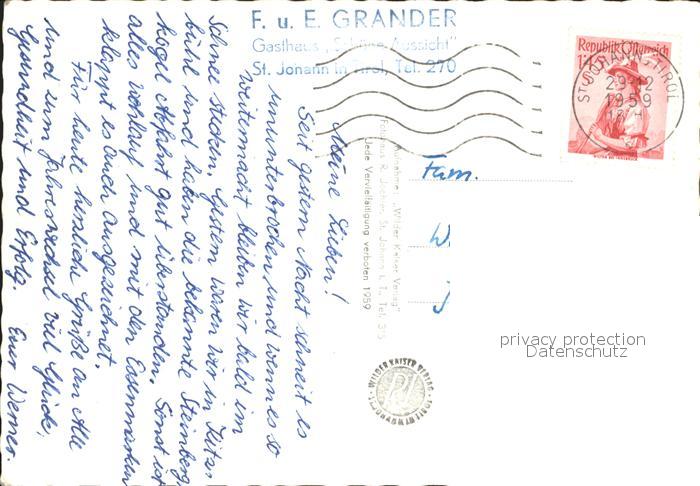 F. u. E. GRANDER
Gasthaus „Schöne Aussicht"
St. Johann in Tirol, Tel. 270
Republik Österreich
ST. JOHANN IN TIROL
29.12
1959
Meine Lieben!
Seit gestern Nacht schneit es
ununterbrochen und wenn es so
weitermacht bleiben wir bald im
Schnee stecken. Gestern waren wir in Kitz-
bühl und haben die bekannte Steinberg-
kogel Abfahrt gut überstanden. Sonst ist
alles wohlauf und mit den
klappt es auch ausgezeichnet.
Für heute herzliche Grüße an Alle
und zum Jahreswechsel viel Glück,
Gesundheit und Erfolg. Euer Werner.
Aufnahme: „Wilder Kaiser Verlag"
Fotohaus R. Jöchler, St. Johann i. T., Tel. 315
Jede Vervielfältigung verboten 1959
Fam.
W
J
WILDER KAISER VERLAG
RJ
privacy protection
Datenschutz